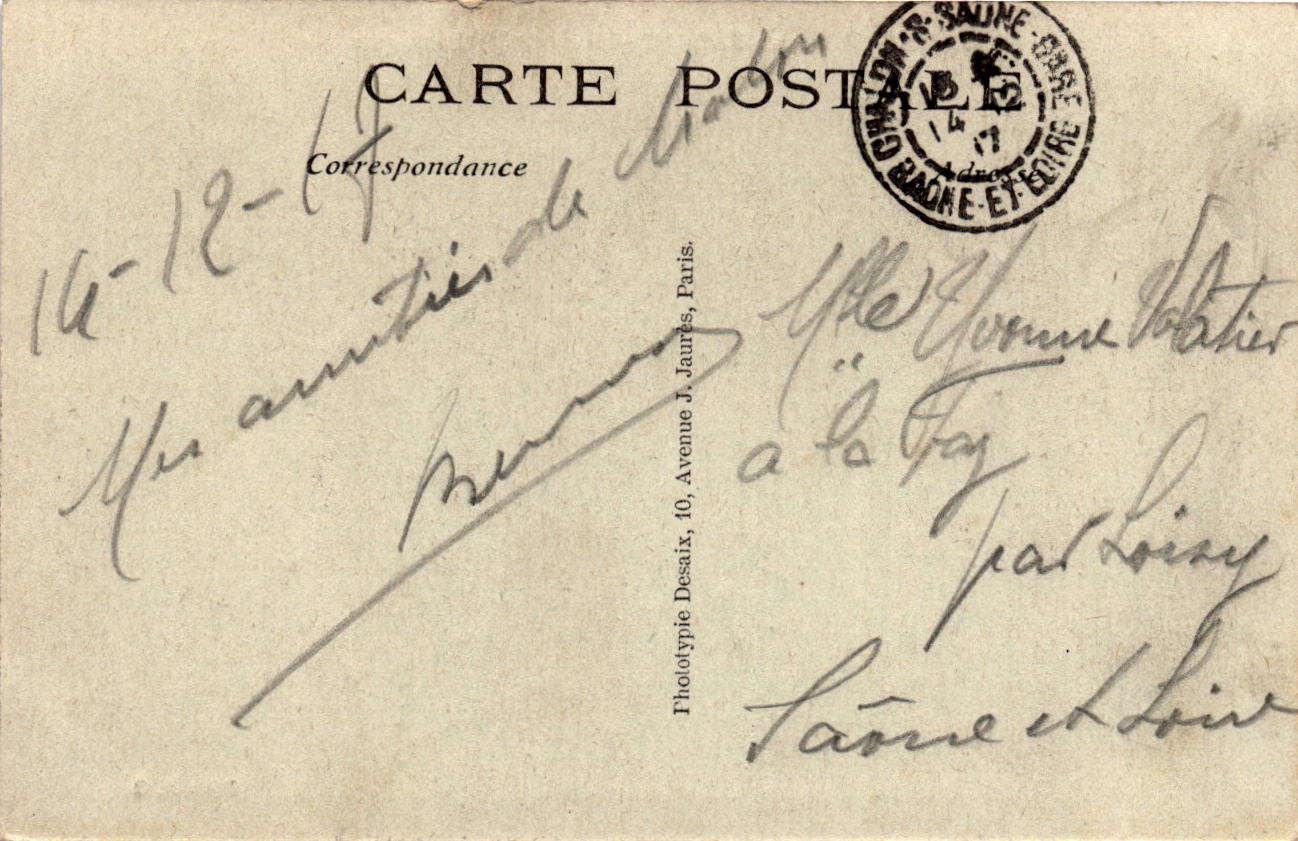 CARTE POSTALE
Correspondance
Adresse
CHALON-S-SAONE-GARE
SAONE-ET-LOIRE
14-12-17
Mes amitiés de Chalon
Phototypie Desaix, 10, Avenue J. Jaurès, Paris.
Mlle Yvonne
à la Fay
par Loisy
Saône et Loire